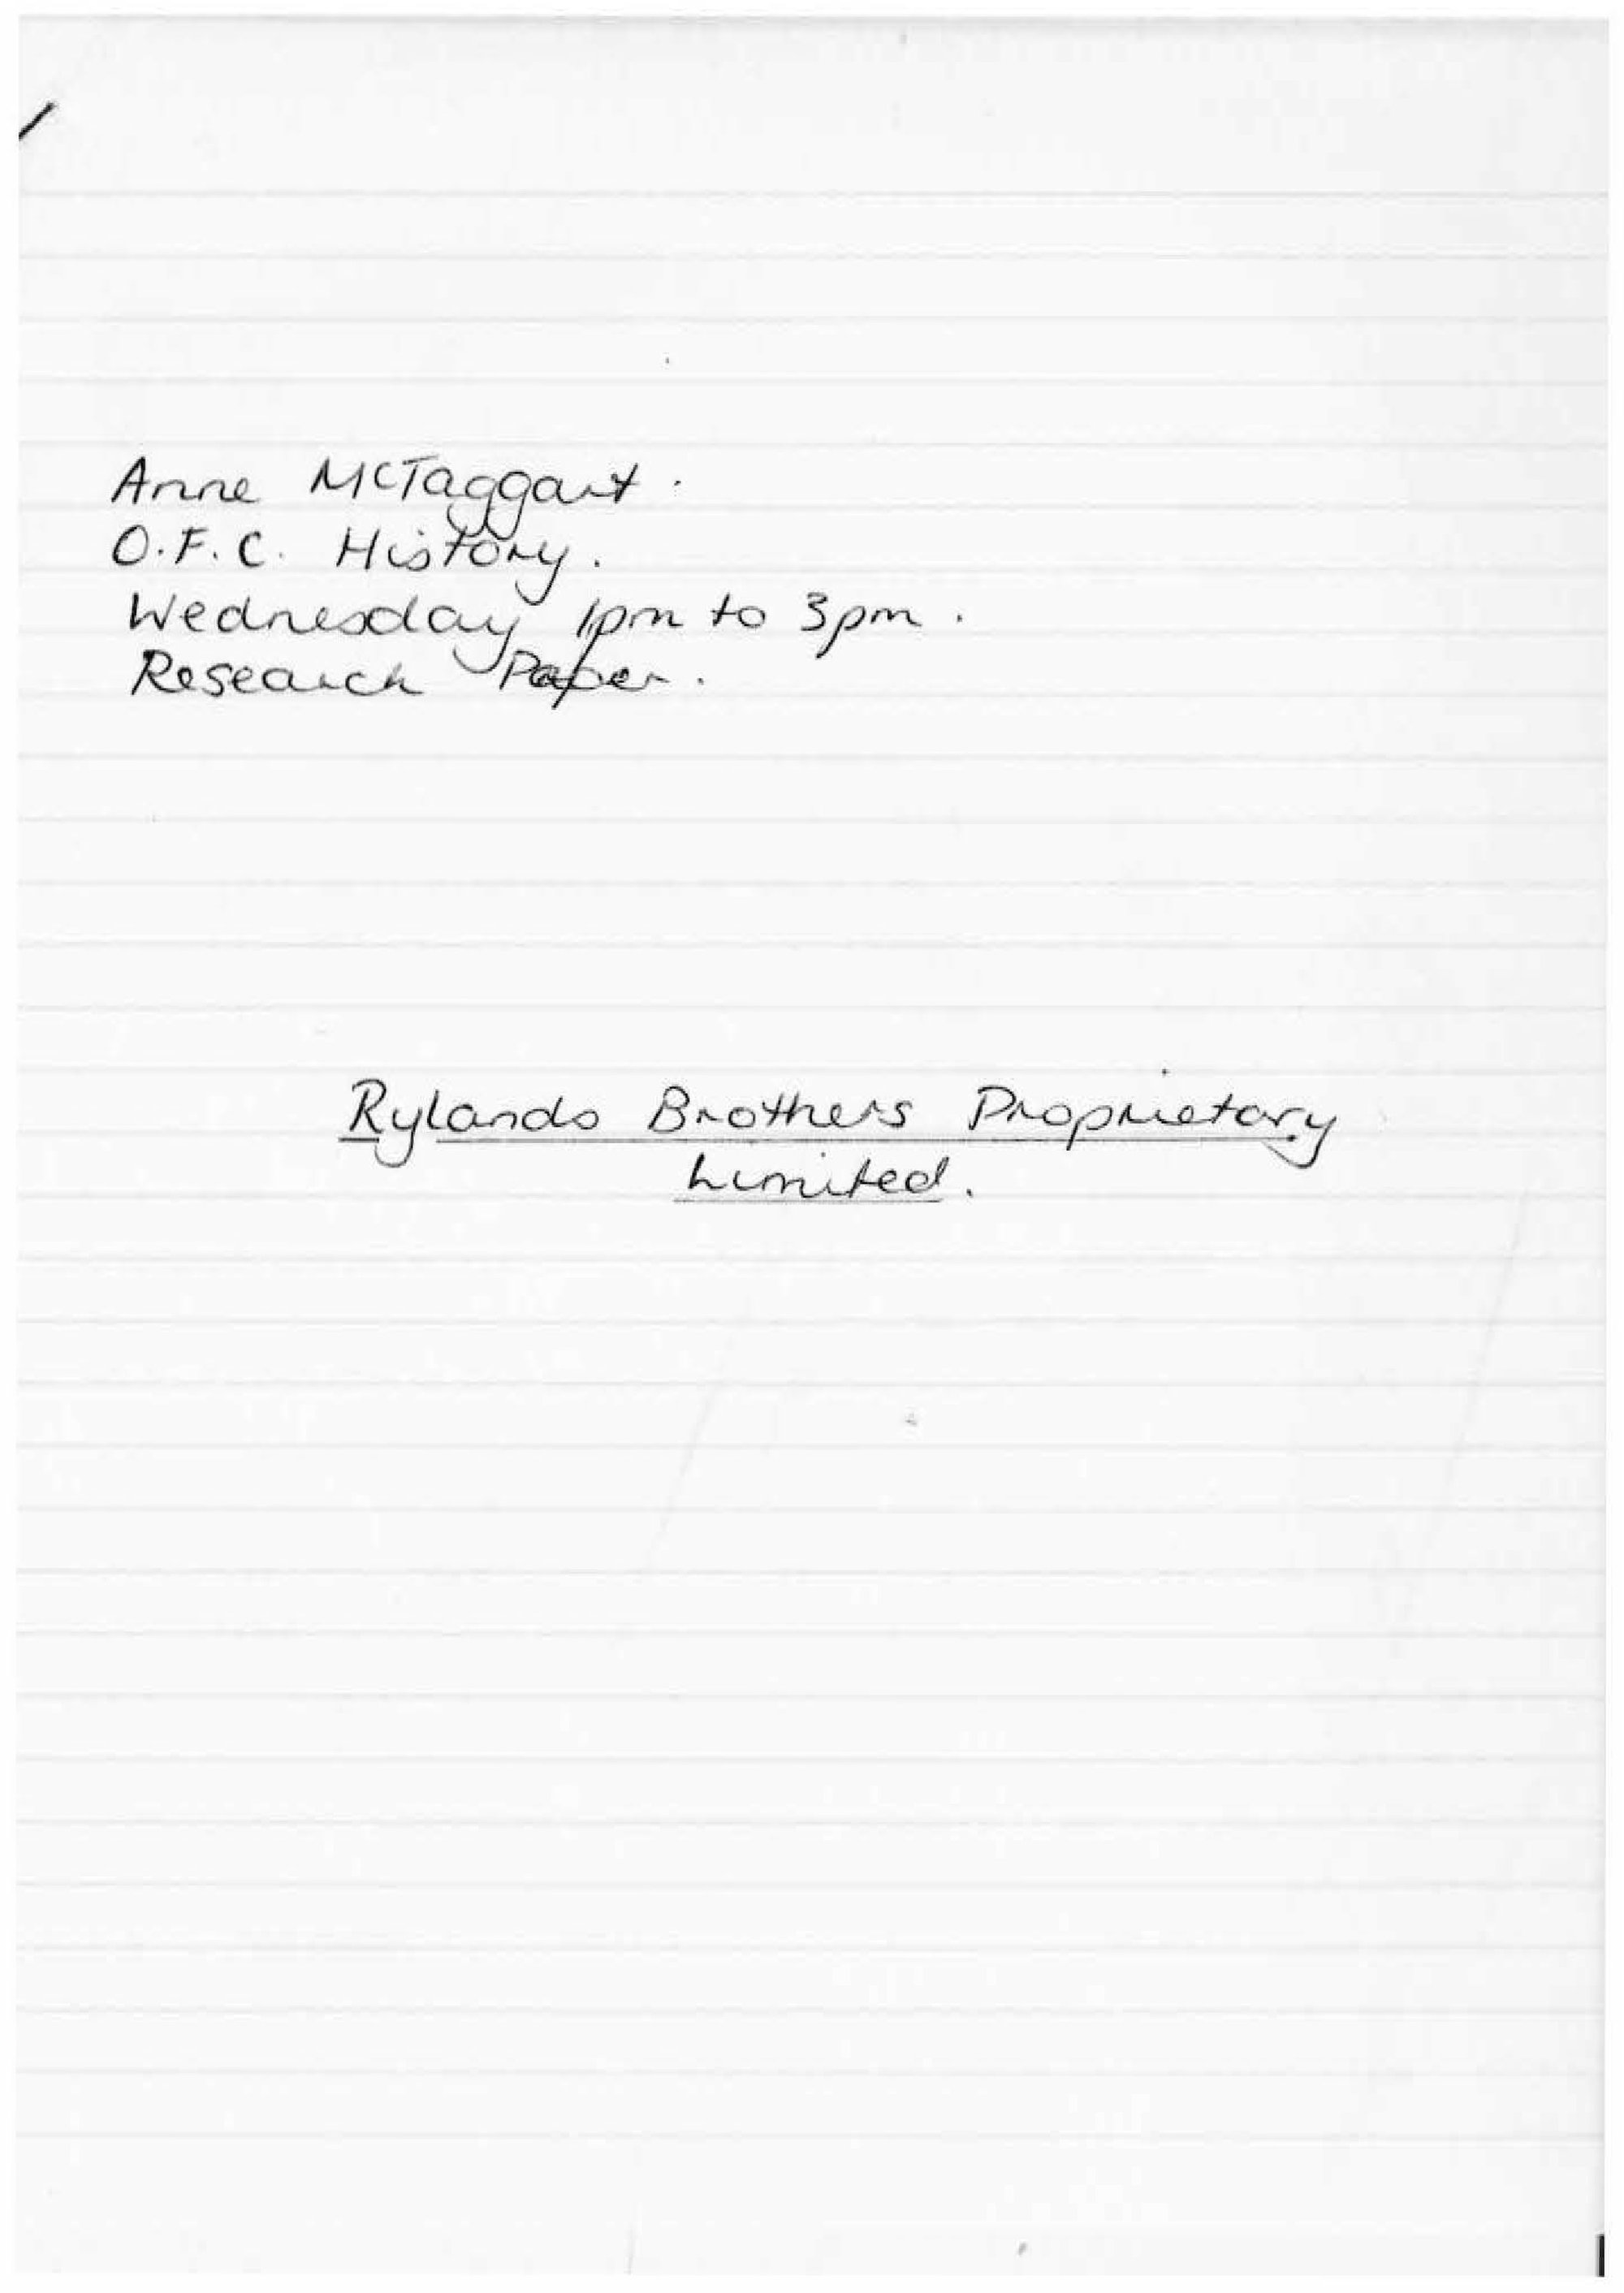 Anne McTaggart.
O.F.C. History.
Wednesday 1pm to 3pm.
Research Paper.
Rylands Brothers Proprietary
Limited.